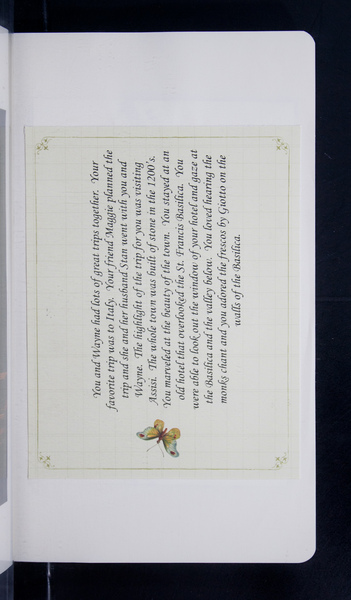 You and Wayne had lots of great trips together. Your
favorite trip was to Italy. Your friend Maggie planned the
trip and she and her husband Stan went with you and
Wayne. The highlight of the trip for you was visiting
Assisi. The whole town was built of stone in the 1200's.
You marveled at the beauty of the town. You stayed at an
old hotel that overlooked the St. Francis Basilica. You
were able to look out the window of your hotel and gaze at
the Basilica and the valley below. You loved hearing the
monks chant and you adored the frescos by Giotto on the
walls of the Basilica.